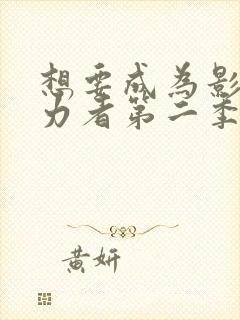 想要成為影
力者第二季
黄妍